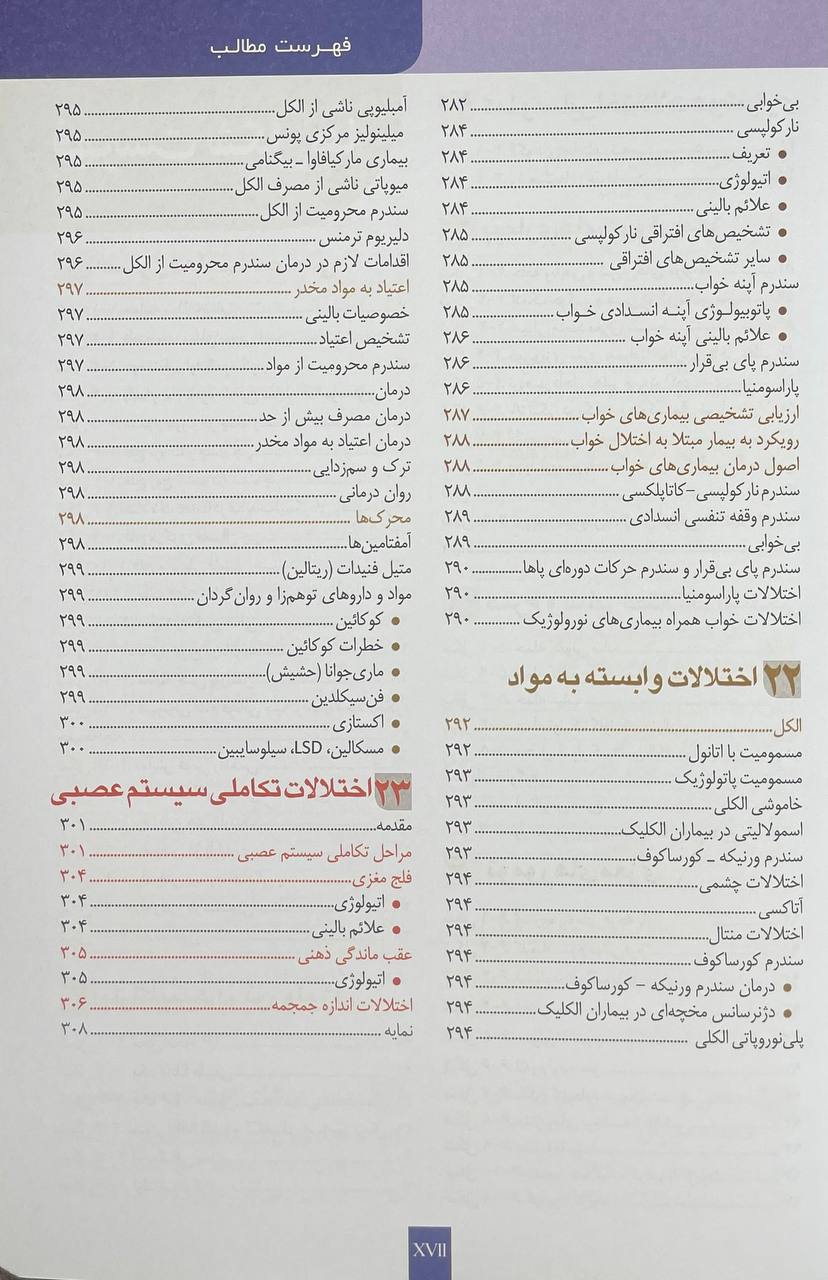 فهرست مطالب
بی‌خوابی ........ ۲۸۲
نارکولپسی ........ ۲۸۴
● تعریف ........ ۲۸۴
● اتیولوژی ........ ۲۸۴
● علائم بالینی ........ ۲۸۴
● تشخیص‌های افتراقی نارکولپسی ........ ۲۸۵
● سایر تشخیص‌های افتراقی ........ ۲۸۵
سندرم آپنه خواب ........ ۲۸۵
● پاتوبیولوژی آپنه انسدادی خواب ........ ۲۸۵
● علائم بالینی آپنه خواب ........ ۲۸۶
سندرم پای بی‌قرار ........ ۲۸۶
پاراسومنیا ........ ۲۸۶
ارزیابی تشخیصی بیماری‌های خواب ........ ۲۸۷
رویکرد به بیمار مبتلا به اختلال خواب ........ ۲۸۸
اصول درمان بیماری‌های خواب ........ ۲۸۸
سندرم نارکولپسی-کاتاپلکسی ........ ۲۸۸
سندرم وقفه تنفسی انسدادی ........ ۲۸۹
بی‌خوابی ........ ۲۸۹
سندرم پای بی‌قرار و سندرم حرکات دوره‌ای پاها ........ ۲۹۰
اختلالات پاراسومنیا ........ ۲۹۰
اختلالات خواب همراه بیماری‌های نورولوژیک ........ ۲۹۰
۲۲ اختلالات وابسته به مواد
الکل ........ ۲۹۲
مسمومیت با اتانول ........ ۲۹۲
مسمومیت پاتولوژیک ........ ۲۹۳
خاموشی الکلی ........ ۲۹۳
اسمولالیتی در بیماران الکلیک ........ ۲۹۳
سندرم ورنیکه ـ کورساکوف ........ ۲۹۳
اختلالات چشمی ........ ۲۹۴
آتاکسی ........ ۲۹۴
اختلالات منتال ........ ۲۹۴
سندرم کورساکوف ........ ۲۹۴
● درمان سندرم ورنیکه - کورساکوف ........ ۲۹۴
● دژنرسانس مخچه‌ای در بیماران الکلیک ........ ۲۹۴
پلی‌نوروپاتی الکلی ........ ۲۹۴
آمبلیوپی ناشی از الکل ........ ۲۹۵
میلینولیز مرکزی پونس ........ ۲۹۵
بیماری مارکیافاوا ـ بیگنامی ........ ۲۹۵
میوپاتی ناشی از مصرف الکل ........ ۲۹۵
سندرم محرومیت از الکل ........ ۲۹۵
دلیریوم ترمنس ........ ۲۹۶
اقدامات لازم در درمان سندرم محرومیت از الکل ........ ۲۹۶
اعتیاد به مواد مخدر ........ ۲۹۷
خصوصیات بالینی ........ ۲۹۷
تشخیص اعتیاد ........ ۲۹۷
سندرم محرومیت از مواد ........ ۲۹۷
درمان ........ ۲۹۸
درمان مصرف بیش از حد ........ ۲۹۸
درمان اعتیاد به مواد مخدر ........ ۲۹۸
ترک و سم‌زدایی ........ ۲۹۸
روان درمانی ........ ۲۹۸
محرک‌ها ........ ۲۹۸
آمفتامین‌ها ........ ۲۹۸
متیل فنیدات (ریتالین) ........ ۲۹۹
مواد و داروهای توهم‌زا و روان‌گردان ........ ۲۹۹
● کوکائین ........ ۲۹۹
● خطرات کوکائین ........ ۲۹۹
● ماری‌جوانا (حشیش) ........ ۲۹۹
● فن‌سیکلدین ........ ۲۹۹
● اکستازی ........ ۳۰۰
● مسکالین، LSD، سیلوسایبین ........ ۳۰۰
۲۳ اختلالات تکاملی سیستم عصبی
مقدمه ........ ۳۰۱
مراحل تکاملی سیستم عصبی ........ ۳۰۱
فلج مغزی ........ ۳۰۴
● اتیولوژی ........ ۳۰۴
● علائم بالینی ........ ۳۰۴
عقب ماندگی ذهنی ........ ۳۰۵
● اتیولوژی ........ ۳۰۵
اختلالات اندازه جمجمه ........ ۳۰۶
نمایه ........ ۳۰۸
XVII